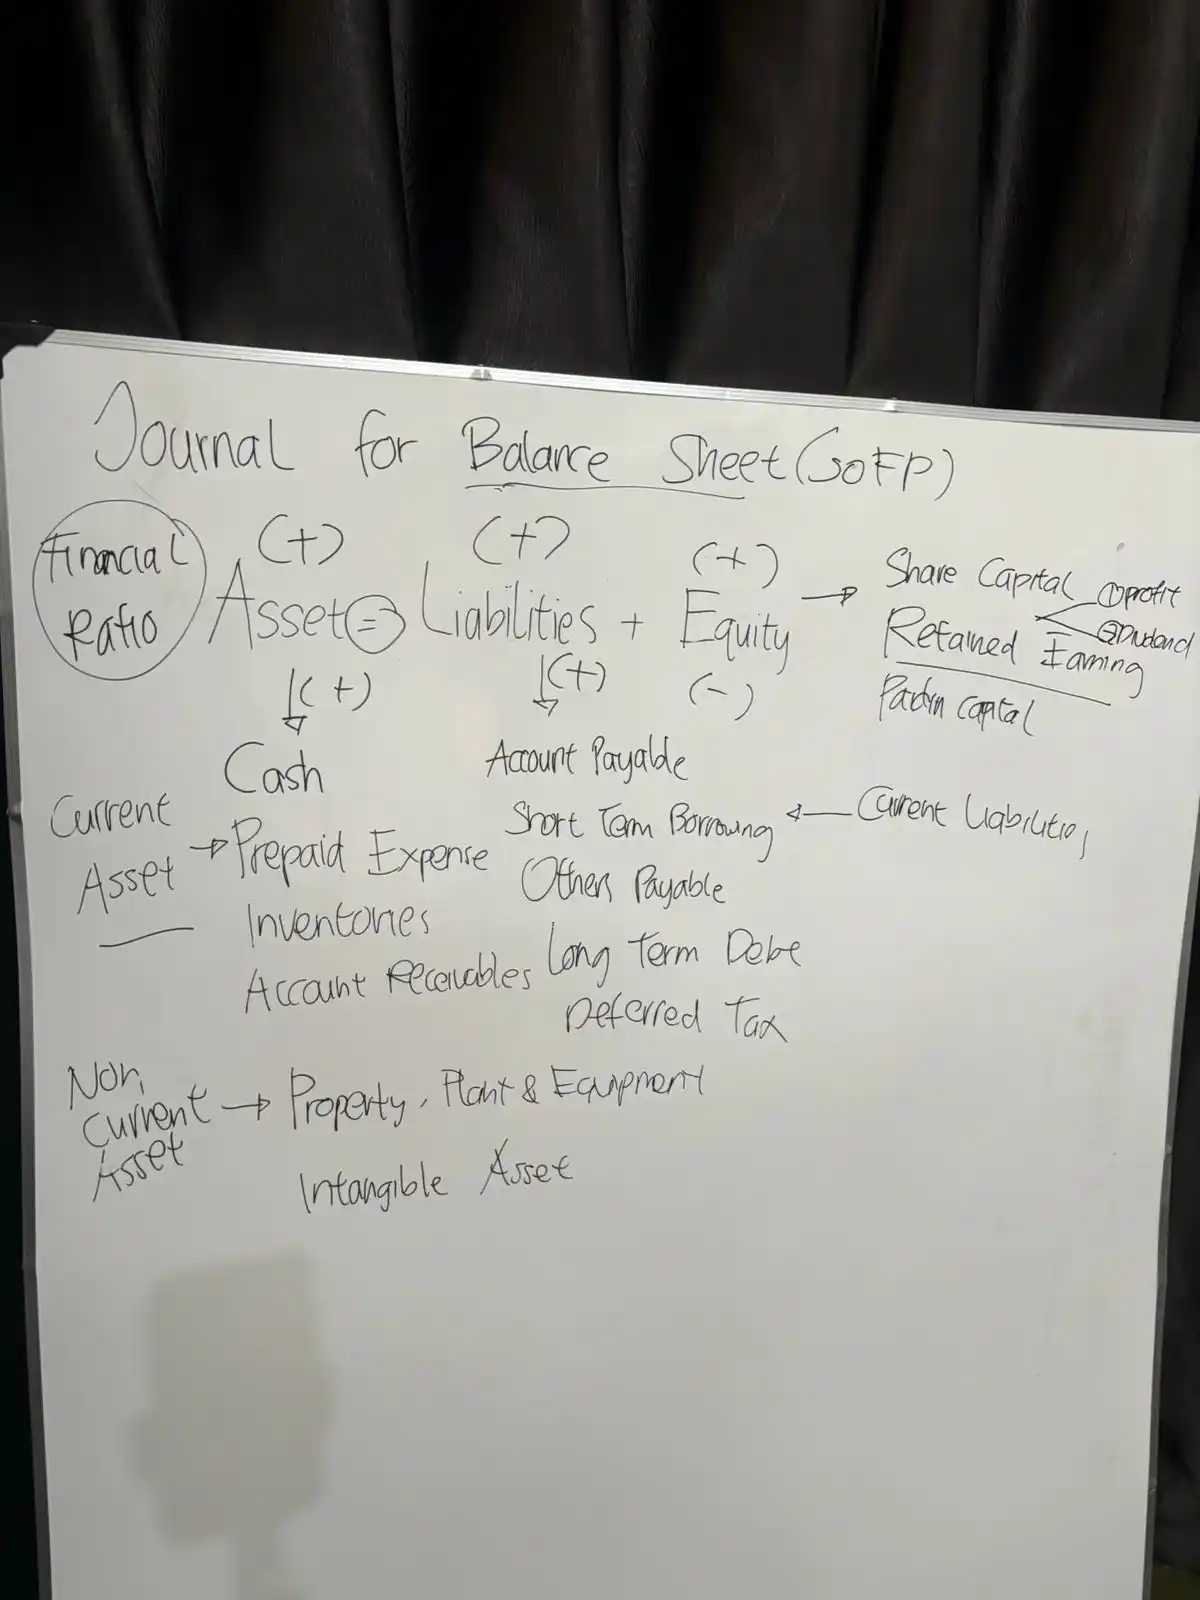 Journal for Balance Sheet (SOFP)
Financial Ratio
(+) (+) (+)
Asset = Liabilities + Equity →
(+) (+) (-)
Share Capital
Retained Earning
① profit
② Dividend
capital
Current Asset →
Cash
Prepaid Expense
Inventories
Account Receivables
Account Payable
Short Term Borrowing ← Current Liabilities
Others Payable
Long Term Debt
Deferred Tax
Non Current Asset →
Property, Plant & Equipment
Intangible Asset